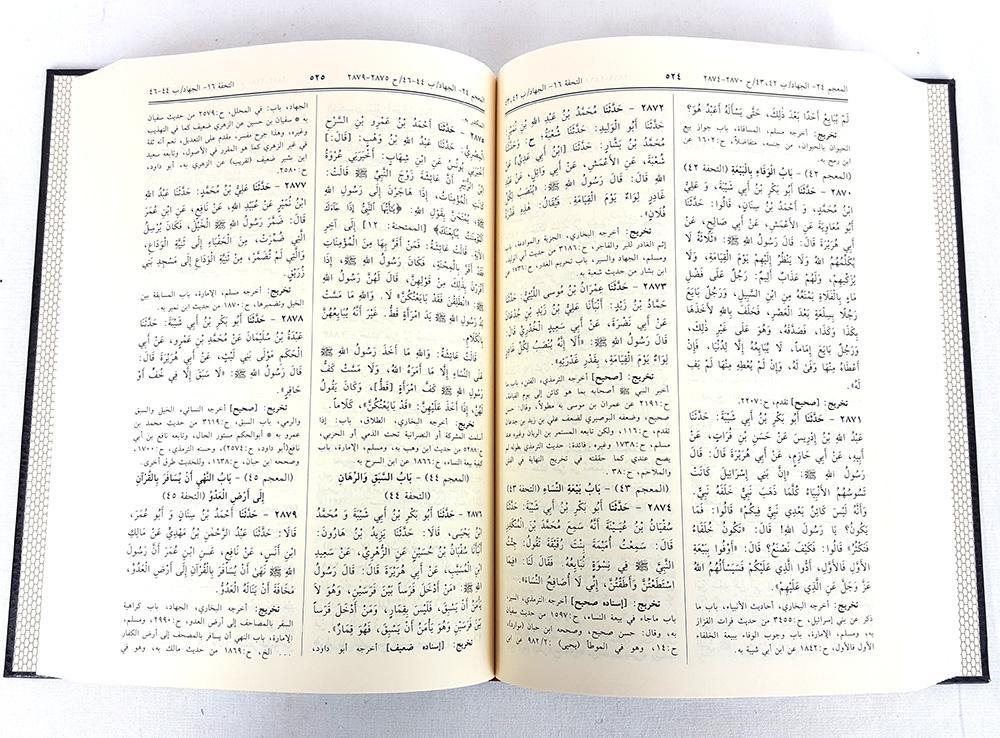 المعجم ٢٤- الجهاد/ب ٤٣،٤٢/ح ٢٨٧٠-٢٨٧٤
٥٢٤
التحفة ١٦- الجهاد/ب
لَمْ يُبَايِعْ أَحَدًا بَعْدَ ذَلِكَ، حَتَّى يَسْأَلَهُ أَعَبْدٌ هُوَ؟
تخريج: أخرجه مسلم، المساقاة، باب جواز بيع
الحيوان بالحيوان، من جنسه، متفاضلاً، ح:١٦٠٢ عن
ابن رمح به.
(المعجم ٤٢) - بَابُ الْوَفَاءِ بِالْبَيْعَةِ (التحفة ٤٢)
٢٨٧٠ - حَدَّثَنَا أَبُو بَكْرِ بْنُ أَبِي شَيْبَةَ، وَ عَلِيُّ
ابْنُ مُحَمَّدٍ، وَ أَحْمَدُ بْنُ سِنَانٍ، قَالُوا: حَدَّثَنَا
أَبُو مُعَاوِيَةَ عَنِ الأَعْمَشِ، عَنْ أَبِي صَالِحٍ، عَنْ
أَبِي هُرَيْرَةَ قَالَ: قَالَ رَسُولُ اللهِ ﷺ: «ثَلَاثَةٌ لَا
يُكَلِّمُهُمُ اللهُ وَلَا يَنْظُرُ إِلَيْهِمْ يَوْمَ الْقِيَامَةِ، وَلَا
يُزَكِّيهِمْ، وَلَهُمْ عَذَابٌ أَلِيمٌ: رَجُلٌ عَلَى فَضْلِ
مَاءٍ بِالْفَلَاةِ يَمْنَعُهُ مِنِ ابْنِ السَّبِيلِ، وَرَجُلٌ بَايَعَ
رَجُلًا بِسِلْعَةٍ بَعْدَ الْعَصْرِ، فَحَلَفَ بِاللهِ لَأَخَذَهَا
بِكَذَا وَكَذَا، فَصَدَّقَهُ، وَهُوَ عَلَى غَيْرِ ذٰلِكَ،
وَرَجُلٌ بَايَعَ إِمَاماً، لَا يُبَايِعُهُ إِلَّا لِدُنْيَا، فَإِنْ
أَعْطَاهُ مِنْهَا وَفَى لَهُ، وَإِنْ لَمْ يُعْطِهِ مِنْهَا لَمْ يَفِ
لَهُ».
تخريج: [صحيح] تقدم، ح:٢٢٠٧.
٢٨٧١ - حَدَّثَنَا أَبُو بَكْرِ بْنُ أَبِي شَيْبَةَ: حَدَّثَنَا
عَبْدُ اللهِ بْنُ إِدْرِيسَ عَنْ حَسَنِ بْنِ فُرَاتٍ، عَنْ
أَبِيهِ، عَنْ أَبِي حَازِمٍ، عَنْ أَبِي هُرَيْرَةَ قَالَ: قَالَ
رَسُولُ اللهِ ﷺ: «إِنَّ بَنِي إِسْرَائِيلَ كَانَتْ
تَسُوسُهُمُ الأَنْبِيَاءُ كُلَّمَا ذَهَبَ نَبِيٌّ خَلَفَهُ نَبِيٌّ.
وَأَنَّهُ لَيْسَ كَائِنٌ بَعْدِي نَبِيٌّ فِيكُمْ» قَالُوا: فَمَا
يَكُونُ؟ يَا رَسُولَ اللهِ! قَالَ: «تَكُونُ خُلَفَاءُ
فَتَكْثُرُ» قَالُوا: فَكَيْفَ نَصْنَعُ؟ قَالَ: «أَوْفُوا بِبَيْعَةِ
الأَوَّلِ فَالأَوَّلِ، أَدُّوا الَّذِي عَلَيْكُمْ فَسَيَسْأَلُهُمُ اللهُ
عَزَّ وَجَلَّ عَنِ الَّذِي عَلَيْهِمْ».
تخريج: أخرجه البخاري، أحاديث الأنبياء، باب ما
ذكر عن بني إسرائيل، ح:٣٤٥٥ من حديث فرات القزاز
به، ومسلم، الإمارة، باب وجوب الوفاء ببيعة الخلفاء
الأول فالأول، ح:١٨٤٢ عن ابن أبي شيبة به.
٢٨٧٢ - حَدَّثَنَا مُحَمَّدُ بْنُ عَبْدِ اللهِ بْنِ نُمَيْرٍ:
حَدَّثَنَا أَبُو الْوَلِيدِ: حَدَّثَنَا شُعْبَةُ؛ ح: وَحَدَّثَنَا
مُحَمَّدُ بْنُ بَشَّارٍ: حَدَّثَنَا [ابْنُ أَبِي عَدِيٍّ] عَنْ
شُعْبَةَ، عَنِ الأَعْمَشِ، عَنْ أَبِي وَائِلٍ، عَنْ
عَبْدِ اللهِ قَالَ: قَالَ رَسُولُ اللهِ ﷺ: «يُنْصَبُ لِكُلِّ
غَادِرٍ لِوَاءٌ يَوْمَ الْقِيَامَةِ. فَيُقَالُ: هٰذِهِ غَدْرَةُ
فُلَانٍ».
تخريج: أخرجه البخاري، الجزية والموادعة، باب
إثم الغادر للبر والفاجر، ح:٣١٨٦ عن أبي الوليد،
ومسلم، الجهاد والسير، باب تحريم الغدر، ح:
ابن بشار من حديث شعبة به.
٢٨٧٣ - حَدَّثَنَا عِمْرَانُ بْنُ مُوسَى اللَّيْثِيُّ:
حَمَّادُ بْنُ زَيْدٍ: أَنْبَأَنَا عَلِيُّ بْنُ زَيْدِ بْنِ جُدْعَانَ
عَنْ أَبِي نَضْرَةَ، عَنْ أَبِي سَعِيدٍ الْخُدْرِيِّ قَالَ:
قَالَ رَسُولُ اللهِ ﷺ: «أَلَا إِنَّهُ يُنْصَبُ لِكُلِّ غَادِرٍ
لِوَاءٌ يَوْمَ الْقِيَامَةِ، بِقَدْرِ غَدْرَتِهِ».
تخريج: [صحيح] أخرجه الترمذي، الفتن، باب ما
أخبر النبي ﷺ أصحابه بما هو كائن إلى يوم القيامة،
ح:٢١٩١ عن عمران بن موسى به مطولاً، وقال: حسن
صحيح، وضعفه البوصيري لضعف علي بن زيد،
تقدم، ح:١١٦، ولكن تابعه المستمر بن الريان وغيره عند
مسلم، ح:١٧٣٨، وغيره. فائدة: حديث الترمذي طوله لم
يصح عندي كما حققته في تخريج النهاية في الفتن
والملاحم، ح:٣٨.
(المعجم ٤٣) - بَابُ بَيْعَةِ النِّسَاءِ (التحفة ٤٣)
٢٨٧٤ - حَدَّثَنَا أَبُو بَكْرِ بْنُ أَبِي شَيْبَةَ: حَدَّثَنَا
سُفْيَانُ بْنُ عُيَيْنَةَ أَنَّهُ سَمِعَ مُحَمَّدَ بْنَ الْمُنْكَدِرِ
قَالَ: سَمِعْتُ أُمَيْمَةَ بِنْتَ رُقَيْقَةَ تَقُولُ: جِئْتُ
النَّبِيَّ ﷺ فِي نِسْوَةٍ نُبَايِعُهُ. فَقَالَ لَنَا: «فِيمَا
اسْتَطَعْتُنَّ وَأَطَقْتُنَّ. إِنِّي لَا أُصَافِحُ النِّسَاءَ».
تخريج: [إسناده صحيح] أخرجه الترمذي، السير،
باب ماجاء في بيعة النساء، ح:١٥٩٧ من حديث سفيان
به، وقال: حسن صحيح، وصححه ابن حبان (موارد)،
ح:١٤، وهو في الموطأ (يحيى): ٩٨٢/٢ عن ابن
المعجم ٢٤- الجهاد/ب ٤٤-٤٦/ح ٢٨٧٥-٢٨٧٩
٥٢٥
التحفة ١٦- الجهاد/ب ٤٤-٤٦
المنكدر به.
٢٨٧٥ - حَدَّثَنَا أَحْمَدُ بْنُ عَمْرِو بْنِ السَّرْحِ
الْمِصْرِيُّ: حَدَّثَنَا عَبْدُ اللهِ بْنُ وَهْبٍ: [قَالَ:]
أَخْبَرَنِي يُونُسُ عَنِ ابْنِ شِهَابٍ: أَخْبَرَنِي عُرْوَةُ
ابْنُ الزُّبَيْرِ أَنَّ عَائِشَةَ زَوْجَ النَّبِيِّ ﷺ قَالَتْ:
كَانَتِ الْمُؤْمِنَاتُ، إِذَا هَاجَرْنَ إِلَى رَسُولِ اللهِ
ﷺ، يُمْتَحَنَّ بِقَوْلِ اللهِ: ﴿يَٰٓأَيُّهَا ٱلنَّبِىُّ إِذَا جَآءَكَ
ٱلْمُؤْمِنَٰتُ يُبَايِعْنَكَ﴾ [الممتحنة: ١٢] إِلَى آخِرِ
الآيَةِ. قَالَتْ عَائِشَةُ: فَمَنْ أَقَرَّ بِهَا مِنَ الْمُؤْمِنَاتِ
فَقَدْ أَقَرَّ بِالْمِحْنَةِ، فَكَانَ رَسُولُ اللهِ ﷺ، إِذَا
أَقْرَرْنَ بِذٰلِكَ مِنْ قَوْلِهِنَّ، قَالَ لَهُنَّ رَسُولُ اللهِ
ﷺ: «انْطَلِقْنَ فَقَدْ بَايَعْتُكُنَّ» لَا. وَاللهِ مَا مَسَّتْ
يَدُ رَسُولِ اللهِ ﷺ يَدَ امْرَأَةٍ قَطُّ. غَيْرَ أَنَّهُ يُبَايِعُهُنَّ
بِالْكَلَامِ.
قَالَتْ عَائِشَةُ: وَاللهِ مَا أَخَذَ رَسُولُ اللهِ ﷺ
عَلَى النِّسَاءِ إِلَّا مَا أَمَرَهُ اللهُ. وَلَا مَسَّتْ كَفُّ
رَسُولِ اللهِ ﷺ كَفَّ امْرَأَةٍ [قَطُّ]، وَكَانَ يَقُولُ
لَهُنَّ، إِذَا أَخَذَ عَلَيْهِنَّ: «قَدْ بَايَعْتُكُنَّ»، كَلَاماً.
تخريج: أخرجه البخاري، الطلاق، باب: إذا
أسلمت المشركة أو النصرانية تحت الذمي أو الحربي،
ح:٥٢٨٨ من حديث ابن وهب به، ومسلم، الإمارة، باب
كيفية بيعة النساء، ح:١٨٦٦ عن ابن السرح به
(المعجم ٤٤) - بَابُ السَّبَقِ وَالرِّهَانِ
(التحفة ٤٤)
٢٨٧٦ - حَدَّثَنَا أَبُو بَكْرِ بْنُ أَبِي شَيْبَةَ وَ مُحَمَّدُ
ابْنُ يَحْيَى، قَالَا: حَدَّثَنَا يَزِيدُ بْنُ هَارُونَ:
أَنْبَأَنَا سُفْيَانُ بْنُ حُسَيْنٍ عَنِ الزُّهْرِيِّ، عَنْ سَعِيدِ
بْنِ الْمُسَيَّبِ، عَنْ أَبِي هُرَيْرَةَ قَالَ: قَالَ رَسُولُ
اللهِ ﷺ: «مَنْ أَدْخَلَ فَرَساً بَيْنَ فَرَسَيْنِ، وَهُوَ لَا
يَأْمَنُ أَنْ يَسْبِقَ، فَلَيْسَ بِقِمَارٍ، وَمَنْ أَدْخَلَ فَرَساً
بَيْنَ فَرَسَيْنِ وَهُوَ يَأْمَنُ أَنْ يَسْبِقَ، فَهُوَ قِمَارٌ».
تخريج: [إسناده ضعيف] أخرجه أبو داود،
الجهاد، باب: في المحلل، ح:٢٥٧٩ من حديث سفيان
به * سفيان بن حسين عن الزهري ضعيف كما في التهذيب
وغيره، وهذا جرح مفسر، مقدم على التعديل، نعم أنه ثقة
في غير الزهري كما هو المقرر في الأصول، وتابعه سعيد
ابن بشير ضعيف (تقريب) عن الزهري به، أبو داود،
ح:٢٥٨٠.
٢٨٧٧ - حَدَّثَنَا عَلِيُّ بْنُ مُحَمَّدٍ: حَدَّثَنَا عَبْدُ اللهِ
ابْنُ نُمَيْرٍ عَنْ عُبَيْدِ اللهِ، عَنْ نَافِعٍ، عَنِ ابْنِ عُمَرَ
قَالَ: ضَمَّرَ رَسُولُ اللهِ ﷺ الْخَيْلَ، فَكَانَ يُرْسِلُ
الَّتِي ضُمِّرَتْ، مِنَ الْحَفْيَاءِ إِلَى ثَنِيَّةِ الْوَدَاعِ،
وَالَّتِي لَمْ تُضَمَّرْ، مِنْ ثَنِيَّةِ الْوَدَاعِ إِلَى مَسْجِدِ بَنِي
زُرَيْقٍ.
تخريج: أخرجه مسلم، الإمارة، باب المسابقة بين
الخيل وتضميرها، ح:١٨٧٠ من حديث ابن نمير به.
٢٨٧٨ - حَدَّثَنَا أَبُو بَكْرِ بْنُ أَبِي شَيْبَةَ: حَدَّثَنَا
عَبْدَةُ بْنُ سُلَيْمَانَ عَنْ مُحَمَّدِ بْنِ عَمْرٍو، عَنْ أَبِي
الْحَكَمِ مَوْلَى بَنِي لَيْثٍ، عَنْ أَبِي هُرَيْرَةَ قَالَ:
قَالَ رَسُولُ اللهِ ﷺ: «لَا سَبَقَ إِلَّا فِي خُفٍّ أَوْ
حَافِرٍ».
تخريج: [صحيح] أخرجه النسائي، الخيل والسبق
والرمي، باب السبق، ح:٣١١٩ من حديث محمد بن
عمرو به * أبوالحكم مستور الحال، وتابعه نافع بن أبي
نافع(أبو داود، ح:٢٥٧٤)، وحسنه الترمذي، ح:١٧٠٠،
وصححه ابن حبان، ح:١٦٣٨، وللحديث طرق أخرى.
(المعجم ٤٥) - بَابُ النَّهْيِ أَنْ يُسَافَرَ بِالْقُرْآنِ
إِلَى أَرْضِ الْعَدُوِّ (التحفة ٤٥)
٢٨٧٩ - حَدَّثَنَا أَحْمَدُ بْنُ سِنَانٍ وَ أَبُو عُمَرَ،
قَالَا: حَدَّثَنَا عَبْدُ الرَّحْمٰنِ بْنُ مَهْدِيٍّ عَنْ مَالِكِ
ابْنِ أَنَسٍ، عَنْ نَافِعٍ، عَنِ ابْنِ عُمَرَ أَنَّ رَسُولَ
اللهِ ﷺ نَهَىٰ أَنْ يُسَافَرَ بِالْقُرْآنِ إِلَى أَرْضِ الْعَدُوِّ،
مَخَافَةَ أَنْ يَنَالَهُ الْعَدُوُّ.
تخريج: أخرجه البخاري، الجهاد، باب كراهية
السفر بالمصاحف إلى أرض العدو، ح:٢٩٩٠، ومسلم،
الإمارة، باب النهي أن يسافر بالمصحف إلى أرض الكفار
... الخ، ح:١٨٦٩ من حديث مالك به، وهو في